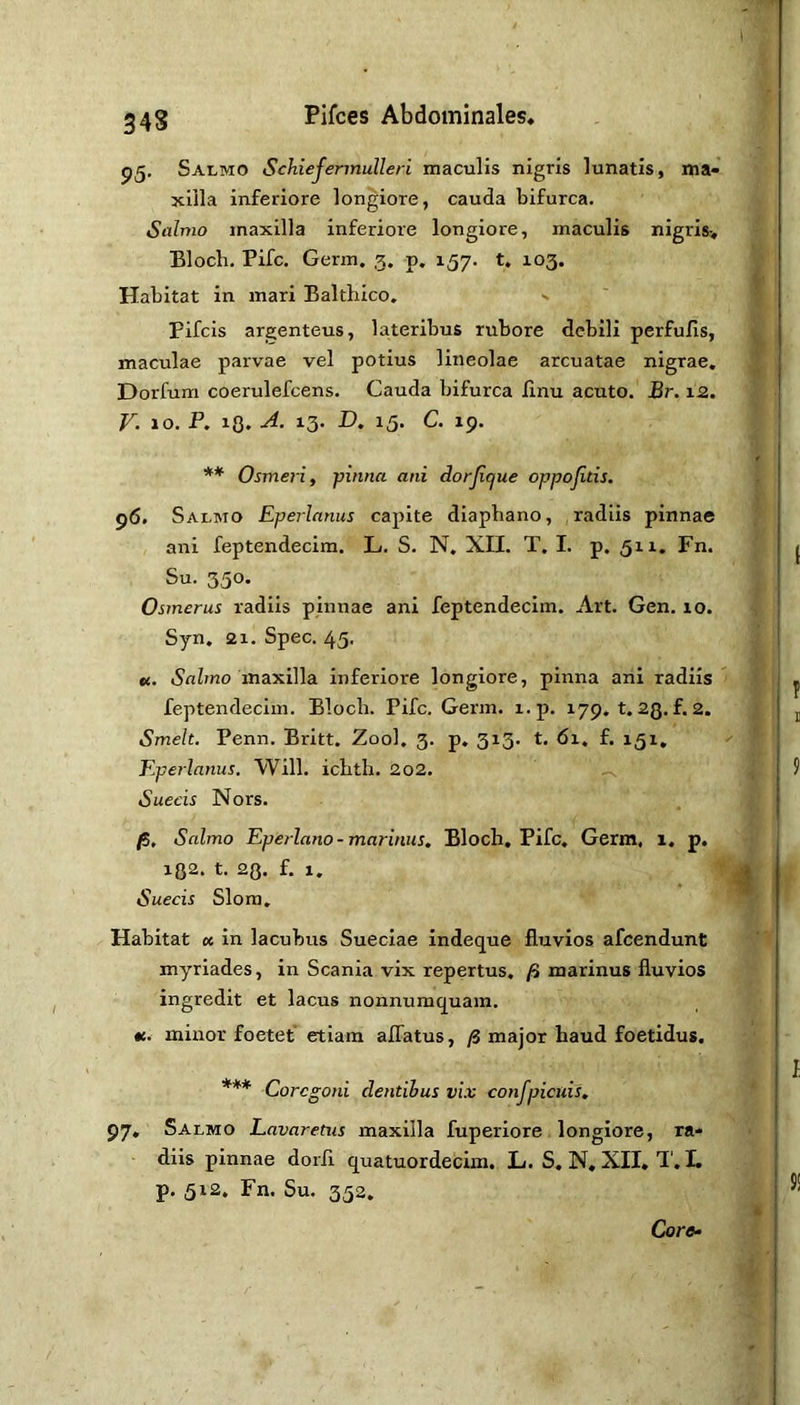 348 Pifces Abdominales.
95. Salmo Schiefermulleri maculis nigris lunatis, ma-
xilla inferiore longiore, cauda bifurca.
Salmo maxilla inferiore longiore, maculis nigris,
Bloch. Pifc. Germ. 3. p. 157. t. 103.
Habitat in mari Balthico.
Pifcis argenteus, lateribus rubore debili perfufis,
maculae parvae vel potius lineolae arcuatae nigrae.
Dorfum coerulefcens. Cauda bifurca finu acuto. Br. 12.
V. 10. P. 18. A. 13. D. 15. C. 19.
** Osmeri, pinna ani dorfique oppofitis.
96. Salmo Eperlanus capite diaphano, radiis pinnae
ani feptendecim. L. S. N. XII. T. I. p. 511. Fn.
Su. 350.
Osmerus radiis pinnae ani feptendecim. Art. Gen. 10.
Syn. 21. Spec. 45.
α. Salmo maxilla inferiore longiore, pinna ani radiis
feptendecim. Bloch. Pifc. Germ. 1. p. 179. t. 28. f. 2.
Smelt. Penn. Britt. Zool. 3. p. 313. t. 61. f. 151.
Eperlanus. Will. ichth. 202.
Suecis Nors.
β. Salmo Eperlano-marinus. Bloch. Pifc. Germ. 1. p.
182. t. 28. f. 1.
Suecis Slom.
Habitat α in lacubus Sueciae indeque fluvios afcendunt
myriades, in Scania vix repertus. β marinus fluvios
ingredit et lacus nonnumquam.
α. minor foetet etiam affatus, β major haud foetidus.
*** Coregoni dentibus vix confpicuis.
97. Salmo Lavaretus maxilla fuperiore longiore, ra-
diis pinnae dorfi quatuordecim. L. S. N. XII. T. I.
p. 512. Fn. Su. 352.
Core-